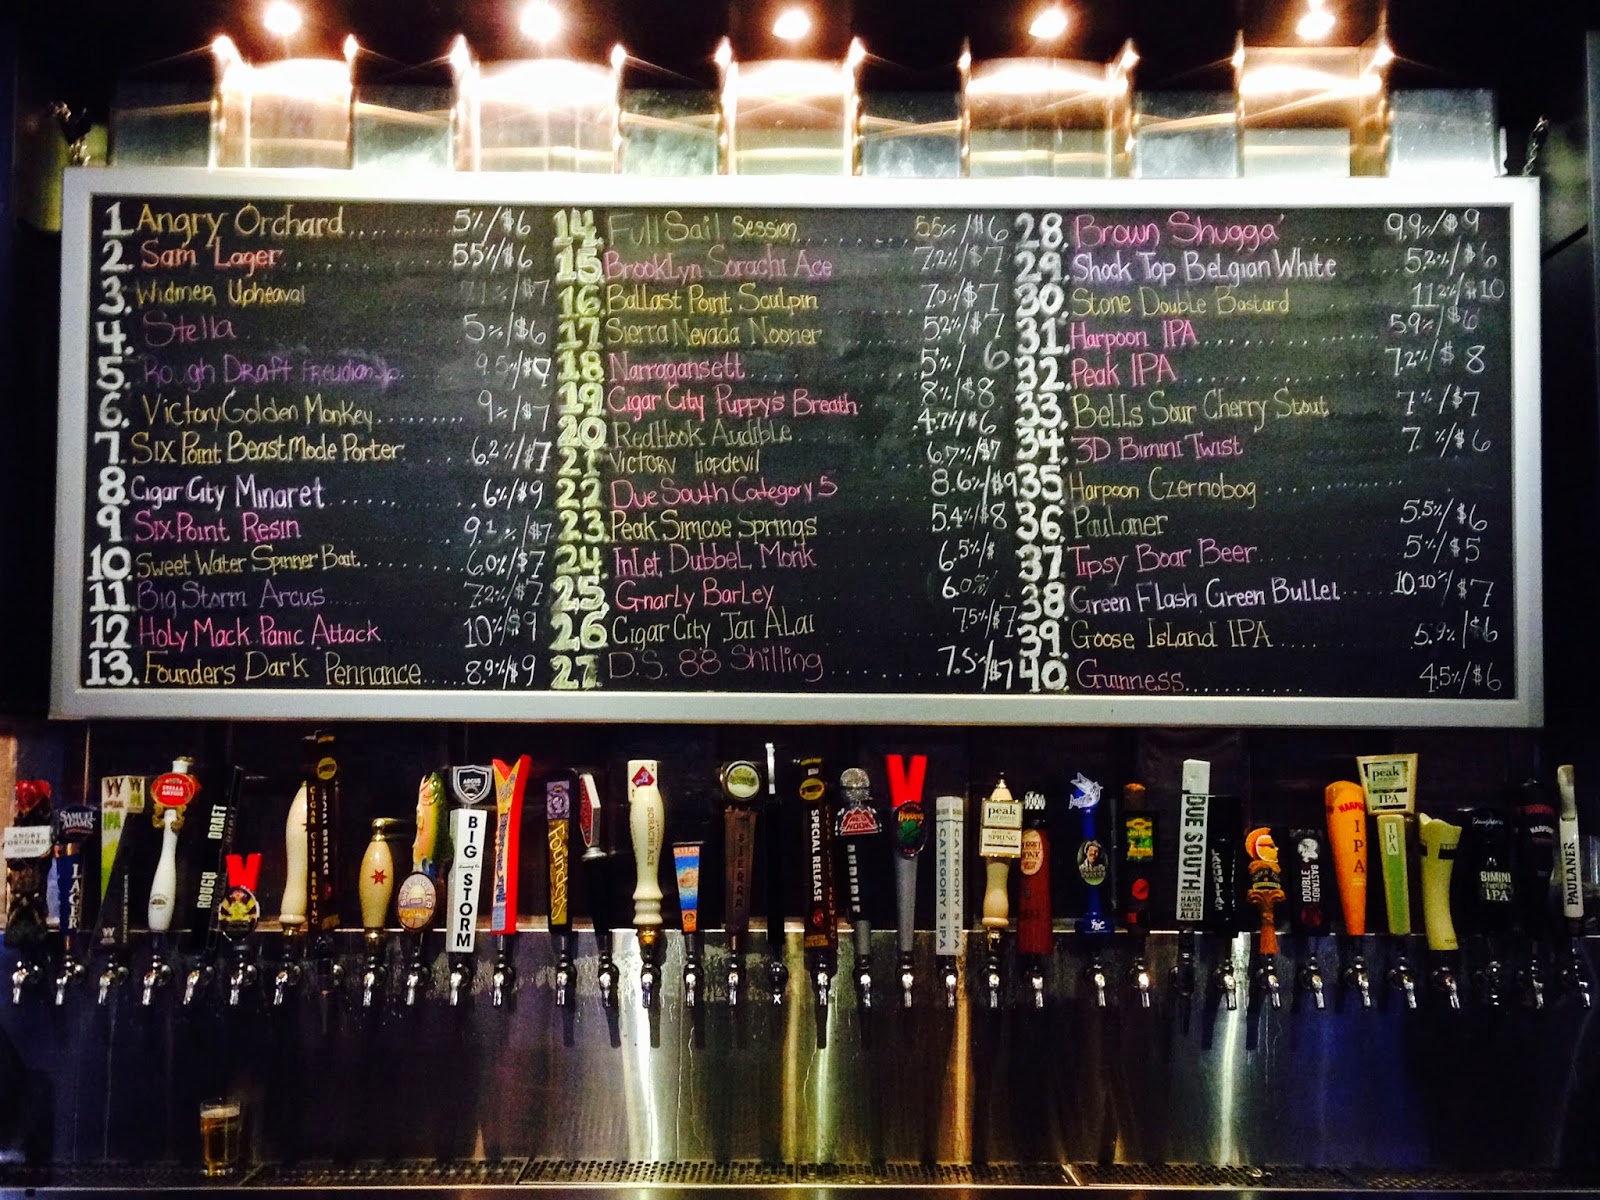 1. Angry Orchard 5%/$6
2. Sam Lager 55%/$6
3. Widmer Upheaval 7.1%/$7
4. Stella 5%/$6
5. Rough Draft Freudian Slip 9.5%/$9
6. Victory Golden Monkey 9%/$7
7. Six Point Beast Mode Porter 6.2%/$7
8. Cigar City Minaret 6%/$9
9. Six Point Resin 9.1%/$7
10. Sweet Water Spinner Bait 6.0%/$7
11. Big Storm Arcus 7.2%/$7
12. Holy Mack. Panic Attack 10%/$9
13. Founders Dark Pennance 8.9%/$9
14. Full Sail Session 55%/$6
15. Brooklyn Sorachi Ace 7.2%/$7
16. Ballast Point Sculpin 7.0%/$7
17. Sierra Nevada Nooner 52%/$7
18. Narragansett 5%/ 6
19. Cigar City Puppy's Breath 8%/$8
20. RedHook Audible 4.7%/$6
21. Victory Hopdevil 6.7%/$7
22. Due South Category 5 8.6%/$9
23. Peak Simcoe Springs 5.4%/$8
24. Inlet Dubbel Monk 6.5%/$
25. Gnarly Barley 6.0%/
26. Cigar City Jai Alai 7.5%/$7
27. D.S. 88 Shilling 7.5%/$7
28. Brown Shugga' 9.9%/$9
29. Shock Top Belgian White 5.2%/$6
30. Stone Double Bastard 11.2%/$10
31. Harpoon IPA 59%/$6
32. Peak IPA 7.2%/$8
33. Bells Sour Cherry Stout 7%/$7
34. 3D Bimini Twist 7.%/$6
35. Harpoon Czernobog
36. Paulaner 5.5%/$6
37. Tipsy Boar Beer 5%/$5
38. Green Flash Green Bullet 10.10%/$7
39. Goose Island IPA 5.9%/$6
40. Guinness 4.5%/$6
ANGRY ORCHARD
SAMUEL ADAMS
LAGER
W
IPA
STELLA ARTOIS
ROUGH DRAFT
V
CIGAR CITY BREWING
ARCUS
BIG STORM
Founders
SORACHI ACE
SIERRA
SPECIAL RELEASE
RED HOOK
AUDIBLE
V
CATEGORY 5 IPA
CATEGORY 5 IPA
peak
SPRING
MONK
DUE SOUTH
HAND CRAFTED ALES
DOUBLE BASTARD
HARPOON
IPA
peak
IPA
IPA
BIMINI
IPA
HARPOON
PAULANER